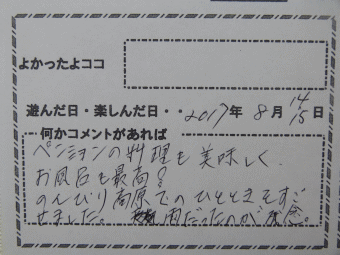 よかったよココ
遊んだ日・楽しんだ日・・2017年 8月 14 15日
何かコメントがあれば
ペンションの料理も美味しく、
お風呂も最高！
のんびり高原でのひとときをすご
せました。 雨だったのが残念。